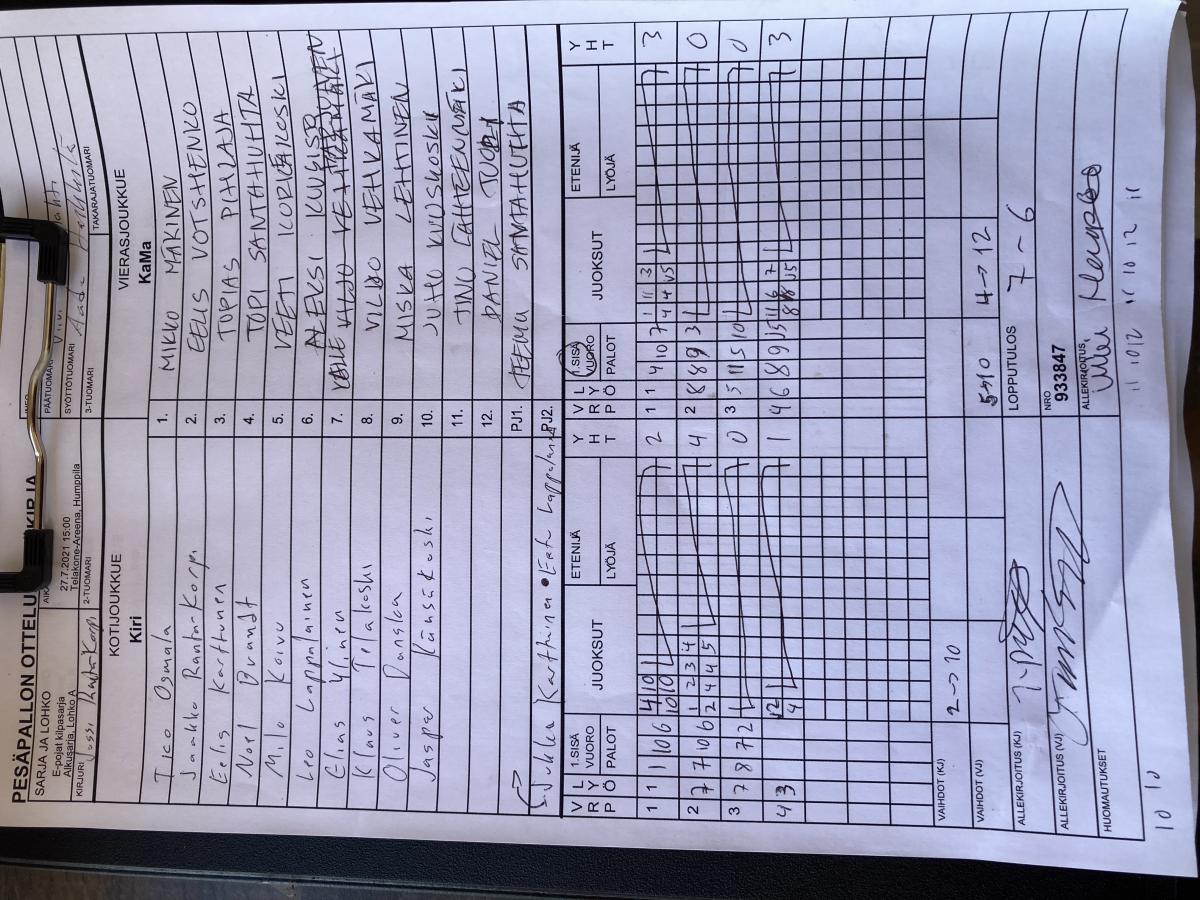 PESÄPALLON OTTELUPÖYTÄKIRJA
SARJA JA LOHKO
E-pojat kilpasarja
Alkusarja, Lohko A
27.7.2021 15:00
Telakone-Areena, Humppila
PÄÄTUOMARI
SYÖTTÖTUOMARI
TAKARAJATUOMARI
KIRJURI Jussi Ranta-Korpi
2-TUOMARI
3-TUOMARI
KOTIJOUKKUE
Kiri
VIERASJOUKKUE
KaMa
Tico Osmala 1. MIKKO MÄKINEN
Jaakko Ranta-Korpi 2. EELIS VOTSHENKO
Eelis Karttunen 3. TOPIAS PIHLAJA
Noel Brandt 4. TOPI SANTAHUHTA
Milo Koivu 5. VEETI KORPIKOSKI
Leo Lappalainen 6. ALEKSI
Elias Ylinen 7.
Klaus Telakoski 8. VILJO VEHKAMÄKI
Oliver Danska 9. MISKA LEHTINEN
Jasper Känsäkoski 10. JUHO KIUSKOSKI
11. TINO LÄHTEENMÄKI
12. DANIEL TUORI
PJ1. TEEMU SANTAHUHTA
Jukka Karttunen • Eetu Lappalainen PJ2.
V R P L Y Ö 1.SISÄ VUORO PALOT JUOKSUT ETENIJÄ LYÖJÄ Y H T
V R P L Y Ö 1.SISÄ VUORO PALOT JUOKSUT ETENIJÄ LYÖJÄ Y H T
1 1 1 10 6 4 10 10 10 2
1 1 4 10 7 1 11 3 4 4 V5 3
2 7 7 10 6 1 2 3 4 2 4 4 5 4
2 8 8 9 3 0
3 7 8 7 2 0
3 5 11 5 10 0
4 3 12 4 1
4 6 8 9 15 3
VAIHDOT (KJ) 2→10 5→10 4→12
VAIHDOT (VJ)
LOPPUTULOS 7 - 6
ALLEKIRJOITUS (KJ)
ALLEKIRJOITUS (VJ)
NRO
933847
ALLEKIRJOITUS
HUOMAUTUKSET
10 10 11 10 12 11 10 12 11